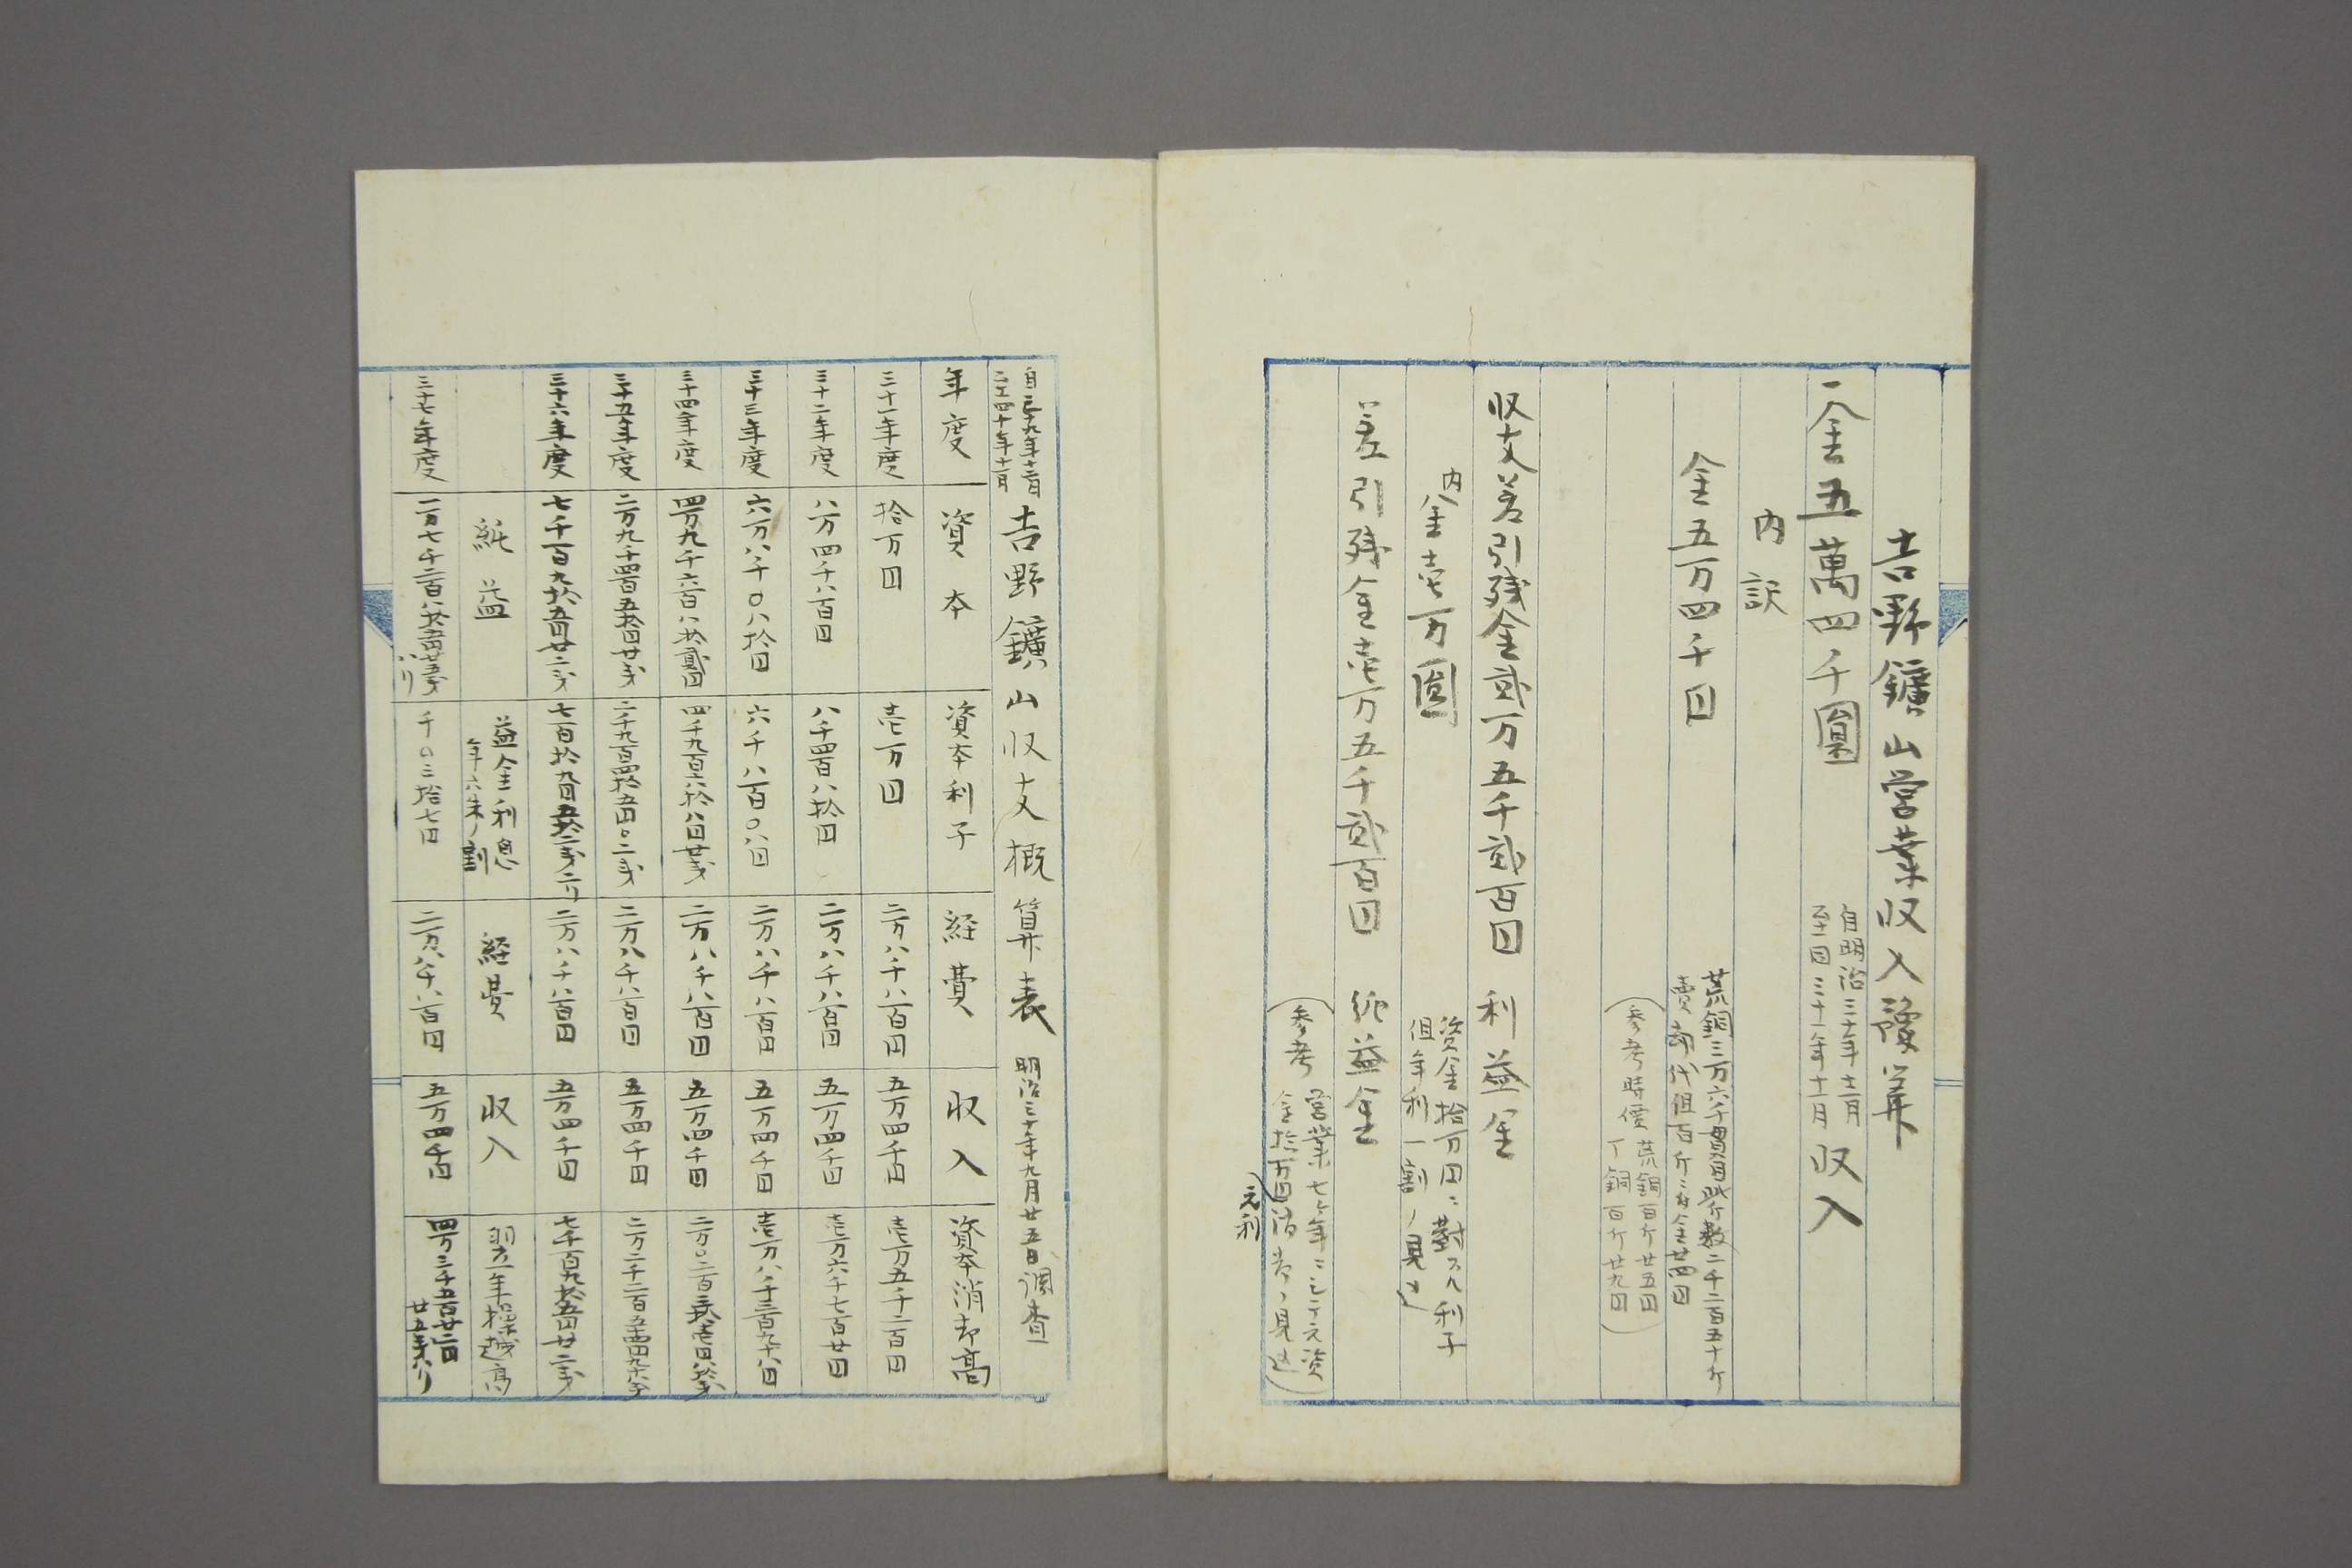 吉野鑛山営業収入豫算
一金五萬四千圓
自明治三十年十二月
至同三十一年十一月
収入
内訳
金五万四千円
荒銅三万六千貫目此斤数二千二百五十斤
賣却代但百斤ニ付金廿四円
(参考時價
荒銅百斤廿五円
丁銅百斤廿九円)
収支差引残金貳万五千貳百円 利益金
内
金壱万圓
資金拾万円ニ對スル利子
但年利一割ノ見込
差引残金壱万五千貳百円 純益金
(参考
営業七ヶ年ニシテ元資
金拾万円消却ノ見込)
元利
自三十年十二月
至四十年十一月
吉野鑛山収支概算表
明治三十年九月廿五日調査
年度 資本 資本利子 経費 収入 資本消却高
三十一年度 拾万円 壱万円 二万八千八百円 五万四千円 壱万五千二百円
三十二年度 八万四千八百円 八千四百八拾円 二万八千八百円 五万四千円 壱万六千七百廿円
三十三年度 六万八千〇八拾円 六千八百〇八円 二万八千八百円 五万四千円 壱万八千三百九十八円
三十四年度 四万九千六百八拾貳円 四千九百六拾八円廿戋 二万八千八百円 五万四千円 二万〇二百三拾壱円八拾戋
三十五年度 二万九千四百五拾円廿戋 二千九百四拾五円〇二戋 二万八千八百円 五万四千円 二万二千二百五十四円九十八戋
三十六年度 七千百九拾五円廿二戋 七百拾九円五拾二戋二リ 二万八千八百円 五万四千円 七千百九拾五円廿二戋
純益 益金利息 経費 収入 翌年操越高
年六朱ノ割
三十七年度 一万七千二百八拾五円廿五戋八リ 千〇三拾七円 二万八千八百円 五万四千円 四万三千五百廿二円廿五戋八リ